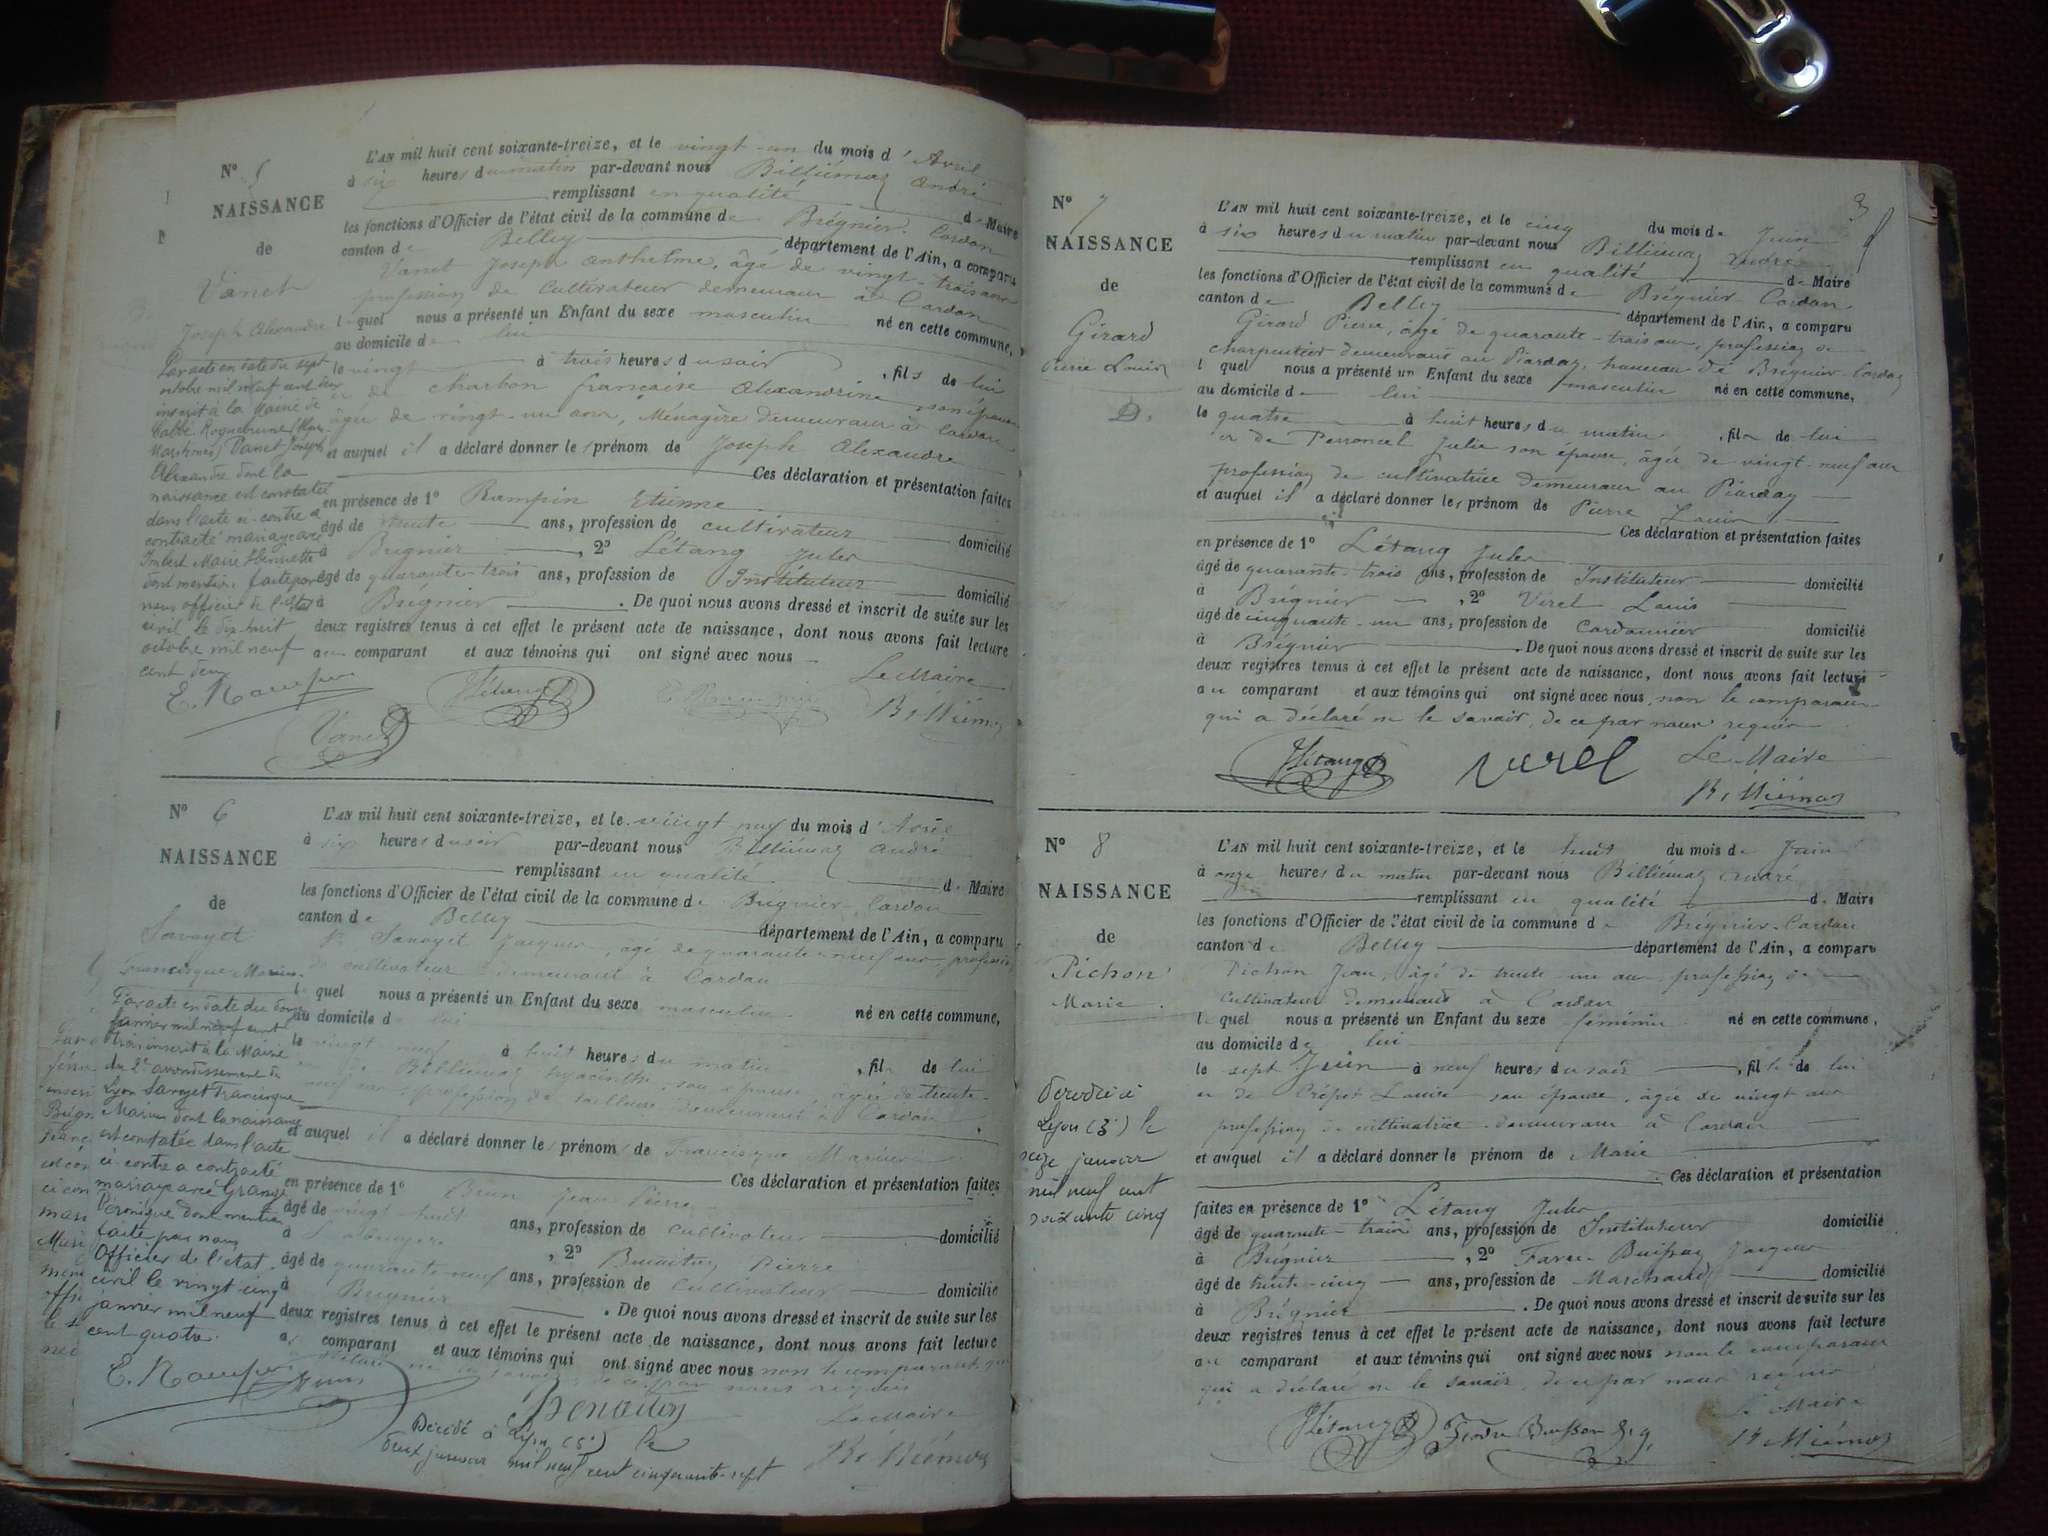 N° 5
NAISSANCE
de
Vanet
Joseph Alexandre
Par acte en date du sept
octobre mil neuf cent deux
inscrit à la Mairie de
Roquebrune
Vanet Joseph
Alexandre dont la
naissance est constatée
dans l'acte ci-contre a
contracté mariage avec
Imbert Marie Henriette
dont mention faite par
nous officier de l'état
civil le dix-huit
octobre mil neuf
cent deux
L'AN mil huit cent soixante-treize, et le vingt-un du mois d'Avril
à six heures du matin par-devant nous Billiémaz André
remplissant en qualité de Maire
les fonctions d'Officier de l'état civil de la commune de Brégnier-Cordon
canton de Belley département de l'Ain, a comparu
Vanet Joseph Anthelme, âgé de vingt-trois ans
profession de cultivateur demeurant à Cordon
lequel nous a présenté un Enfant du sexe masculin né en cette commune,
au domicile de lui
le vingt à trois heures du soir, fils de lui
et de Charbon française Alexandrine son épouse
âgée de vingt-un ans, Ménagère demeurant à Cordon
et auquel il a déclaré donner les prénom de Joseph Alexandre
Ces déclaration et présentation faites
en présence de 1° Rampin Etienne
âgé de trente ans, profession de cultivateur domicilié
à Brégnier, 2° Létang Jules
âgé de quarante-trois ans, profession de Instituteur domicilié
à Brégnier. De quoi nous avons dressé et inscrit de suite sur les
deux registres tenus à cet effet le présent acte de naissance, dont nous avons fait lecture
au comparant et aux témoins qui ont signé avec nous
Le Maire
JLétang
Billiémaz
Vanet
N° 6
NAISSANCE
de
Savoyet
Francisque Marius
Par acte en date du
janvier mil neuf cent
trois inscrit à la Mairie
du 2e arrondissement de
Lyon Savoyet Francisque
Marius dont la naissance
est constatée dans l'acte
ci-contre a contracté
mariage avec Grange
Véronique dont mention
faite par nous
Officier de l'état
civil le vingt cinq
janvier mil neuf
cent quatre
L'AN mil huit cent soixante-treize, et le vingt neuf du mois d'Avril
à six heures du soir par-devant nous Billiémaz André
remplissant en qualité de Maire
les fonctions d'Officier de l'état civil de la commune de Brégnier-Cordon
canton de Belley département de l'Ain, a comparu
Savoyet Jacques, âgé de quarante-neuf ans, profession
de cultivateur demeurant à Cordon
lequel nous a présenté un Enfant du sexe masculin né en cette commune,
au domicile de lui
le vingt neuf à huit heures du matin, fils de lui
et de Billiémaz hyacinthe, son épouse, âgée de trente-
neuf ans, profession de tailleuse demeurant à Cordon
et auquel il a déclaré donner les prénoms de Francisque Marius
Ces déclaration et présentation faites
en présence de 1° Brun Jean Pierre
âgé de vingt-huit ans, profession de cultivateur domicilié
à, 2° Benaitoy Pierre
âgé de quarante-neuf ans, profession de cultivateur domicilié
à Brégnier. De quoi nous avons dressé et inscrit de suite sur les
deux registres tenus à cet effet le présent acte de naissance, dont nous avons fait lecture
au comparant et aux témoins qui ont signé avec nous non le comparant qui
a déclaré ne le savoir, de ce par nous requis
Le Maire
Billiémaz
Décédé à Lyon (5e) le
deux janvier mil neuf cent cinquante-sept
3
N° 7
NAISSANCE
de
Girard
Pierre Louis
D.
L'AN mil huit cent soixante-treize, et le cinq du mois de Juin
à six heures du matin par-devant nous Billiémaz André
remplissant en qualité de Maire
les fonctions d'Officier de l'état civil de la commune de Brégnier-Cordon
canton de Belley département de l'Ain, a comparu
Girard Pierre, âgé de quarante-trois ans, profession de
charpentier demeurant au Piarday, hameau de Brégnier-Cordon
lequel nous a présenté un Enfant du sexe masculin né en cette commune,
au domicile de lui
le quatre à huit heures du matin, fils de lui
et de Perroncel Julie son épouse, âgée de vingt-neuf ans
profession de cultivatrice demeurant au Piarday
et auquel il a déclaré donner les prénom de Pierre Louis
Ces déclaration et présentation faites
en présence de 1° Létang Jules
âgé de quarante-trois ans, profession de Instituteur domicilié
à Brégnier, 2° Verel Louis
âgé de cinquante-un ans, profession de Cordonnier domicilié
à Brégnier. De quoi nous avons dressé et inscrit de suite sur les
deux registres tenus à cet effet le présent acte de naissance, dont nous avons fait lecture
au comparant et aux témoins qui ont signé avec nous, non le comparant
qui a déclaré ne le savoir, de ce par nous requis
JLétang verel Le Maire
Billiémaz
N° 8
NAISSANCE
de
Pichon
Marie
Décédée à
Lyon (3e) le
seize janvier
mil neuf cent
soixante cinq
L'AN mil huit cent soixante-treize, et le huit du mois de Juin
à onze heures du matin par-devant nous Billiémaz André
remplissant en qualité de Maire
les fonctions d'Officier de l'état civil de la commune de Brégnier-Cordon
canton de Belley département de l'Ain, a comparu
Pichon Jean, âgé de trente-un ans profession de
cultivateur demeurant à Cordon
lequel nous a présenté un Enfant du sexe féminin né en cette commune,
au domicile de lui
le sept Juin à neuf heures du soir, fille de lui
et de Crépet Louise son épouse, âgée de vingt ans
profession de cultivatrice demeurant à Cordon
et auquel il a déclaré donner le prénom de Marie
Ces déclaration et présentation
faites en présence de 1° Létang Jules
âgé de quarante-trois ans, profession de Instituteur domicilié
à Brégnier, 2° Favre-Buisson Jacques
âgé de trente-cinq ans, profession de Marchand domicilié
à Brégnier. De quoi nous avons dressé et inscrit de suite sur les
deux registres tenus à cet effet le présent acte de naissance, dont nous avons fait lecture
au comparant et aux témoins qui ont signé avec nous non le comparant
qui a déclaré ne le savoir, de ce par nous requis
Le Maire
JLétang Billiémaz